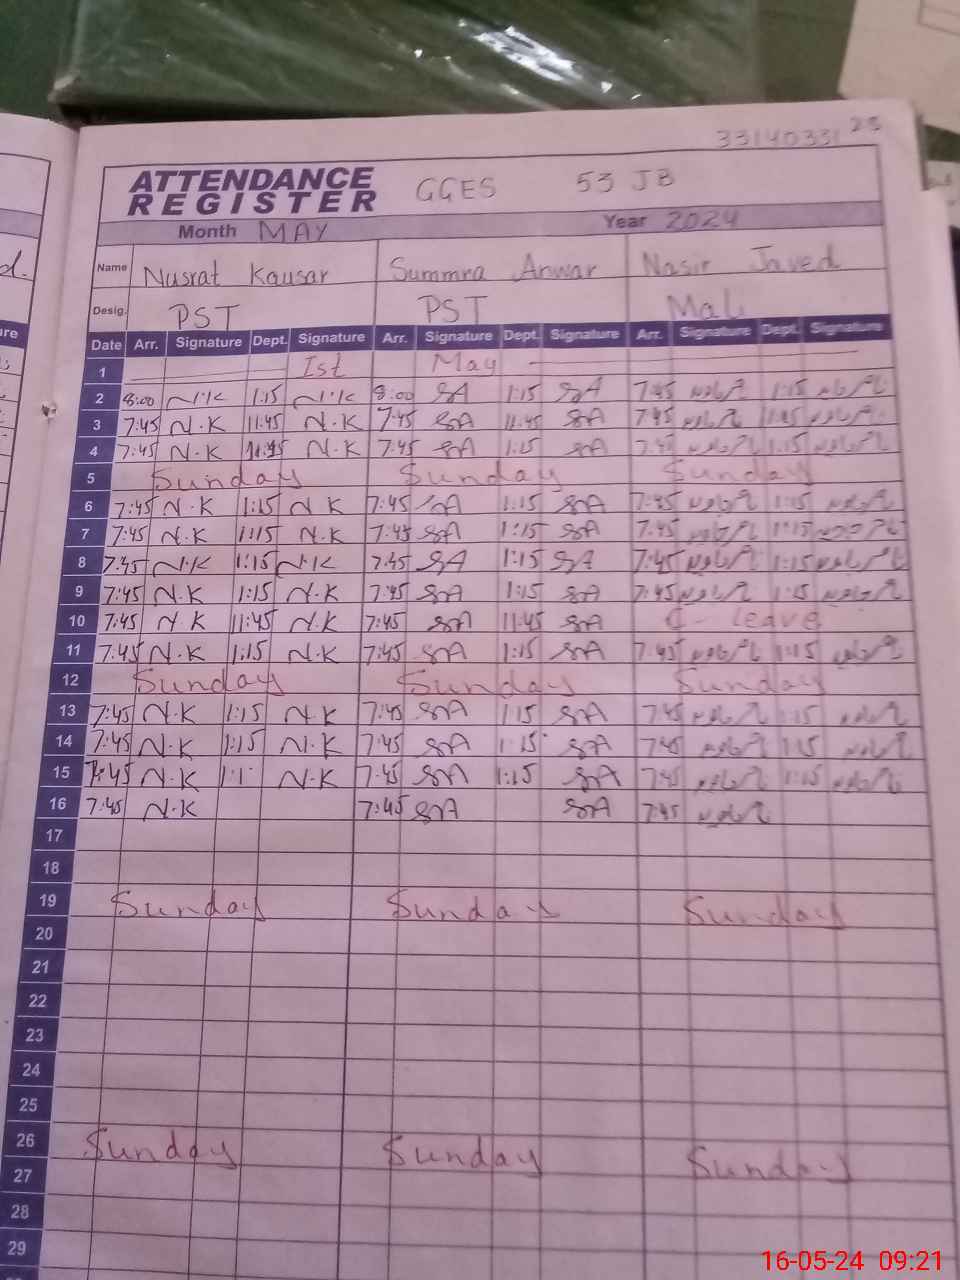 33140331 23
ATTENDANCE REGISTER GGES 53 JB
Month MAY Year 2024
Name Nusrat Kausar Summra Anwar Nasir Javed
Desig. PST PST Mali
Date Arr. Signature Dept. Signature Arr. Signature Dept. Signature Arr. Signature Dept. Signature
1 Ist May
2 8:00 N.K 1:15 N.K 8:00 SA 1:15 SA 7:45 1:15
3 7:45 N.K 11:45 N.K 7:45 SA 11:45 SA 7:45
4 7:45 N.K N.K 7:45 SA 1:15 SA 7:45 1:15
5 Sunday Sunday Sunday
6 7:45 N.K 1:15 N.K 7:45 SA 1:15 SA 7:45 1:15
7 7:45 N.K 1:15 N.K 7:45 SA 1:15 SA 7:45 1:15
8 7:45 N.K 1:15 N.K 7:45 SA 1:15 SA 7:45 1:15
9 7:45 N.K 1:15 N.K 7:45 SA 1:15 SA 7:45 1:15
10 7:45 N.K 11:45 N.K 7:45 SA 11:45 SA C-leave
11 7:45 N.K 1:15 N.K 7:45 SA 1:15 SA 7:45 1:15
12 Sunday Sunday Sunday
13 7:45 N.K 1:15 N.K 7:45 SA 1:15 SA 7:45 1:15
14 7:45 N.K 1:15 N.K 7:45 SA 1:15 SA 7:45 1:15
15 7:45 N.K N.K 7:45 SA 1:15 SA 7:45 1:15
16 7:45 N.K 7:45 SA SA 7:45
17
18
19 Sunday Sunday Sunday
20
21
22
23
24
25
26 Sunday Sunday Sunday
27
28
29
16-05-24 09:21